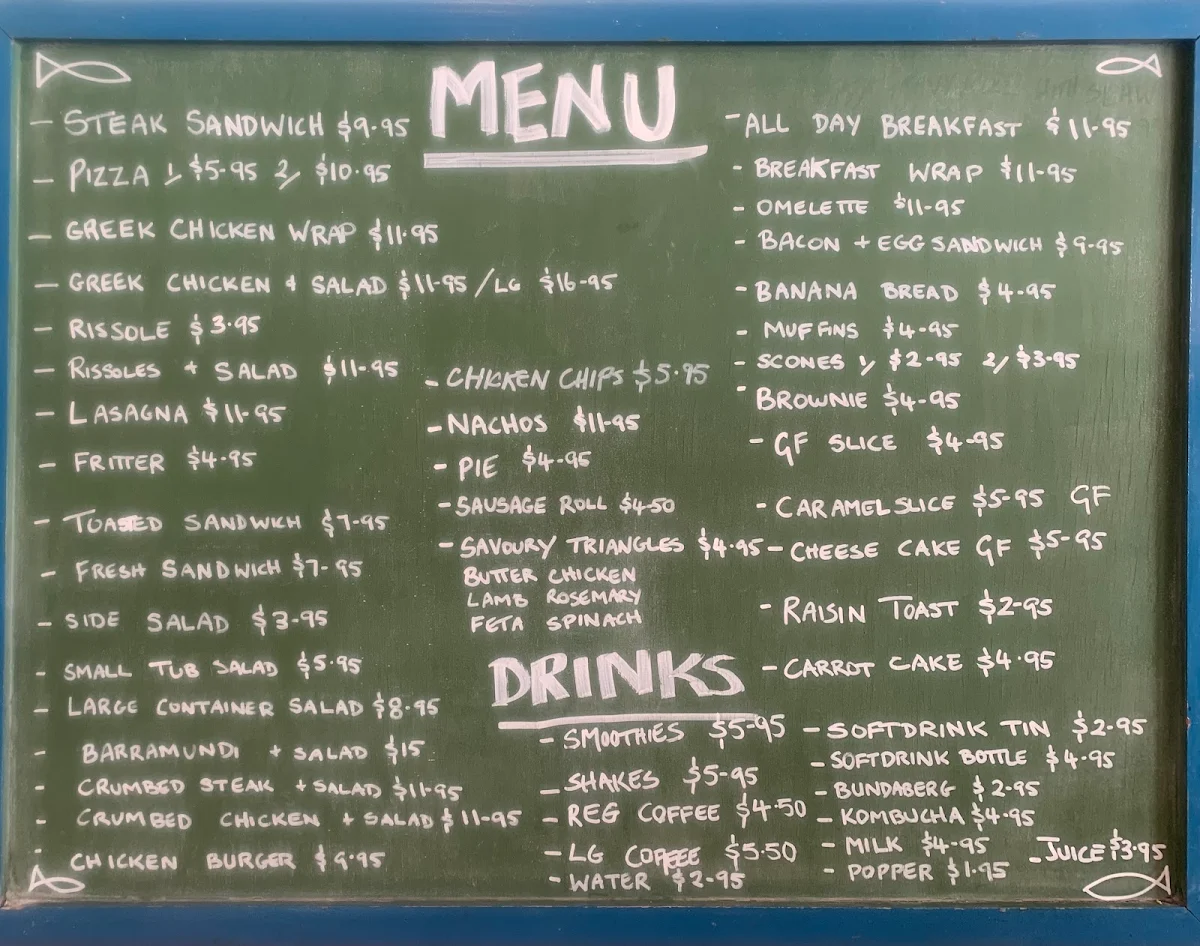 MENU
- STEAK SANDWICH $9.95
- PIZZA 1/ $5.95 2/ $10.95
- GREEK CHICKEN WRAP $11.95
- GREEK CHICKEN + SALAD $11.95 / LG $16.95
- RISSOLE $3.95
- RISSOLES + SALAD $11.95
- LASAGNA $11.95
- FRITTER $4.95
- TOASTED SANDWICH $7.95
- FRESH SANDWICH $7.95
- SIDE SALAD $3.95
- SMALL TUB SALAD $5.95
- LARGE CONTAINER SALAD $8.95
- BARRAMUNDI + SALAD $15
- CRUMBED STEAK + SALAD $11.95
- CRUMBED CHICKEN + SALAD $11-95
- CHICKEN BURGER $9.95
- CHICKEN CHIPS $5.95
- NACHOS $11-95
- PIE $4-95
- SAUSAGE ROLL $4-50
- SAVOURY TRIANGLES $4.95
BUTTER CHICKEN
LAMB ROSEMARY
FETA SPINACH
- ALL DAY BREAKFAST $11-95
- BREAKFAST WRAP $11-95
- OMELETTE $11-95
- BACON + EGG SANDWICH $9-95
- BANANA BREAD $4-95
- MUFFINS $4-95
- SCONES 1/ $2-95 2/ $3-95
- BROWNIE $4-95
- GF SLICE $4-95
- CARAMEL SLICE $5-95 GF
- CHEESE CAKE GF $5-95
- RAISIN TOAST $2-95
- CARROT CAKE $4.95
DRINKS
- SMOOTHIES $5-95
- SHAKES $5-95
- REG COFFEE $4-50
- LG COFFEE $5.50
- WATER $2-95
- SOFTDRINK TIN $2-95
- SOFTDRINK BOTTLE $4.95
- BUNDABERG $2-95
- KOMBUCHA $4-95
- MILK $4-95
- JUICE $3.95
- POPPER $1.95